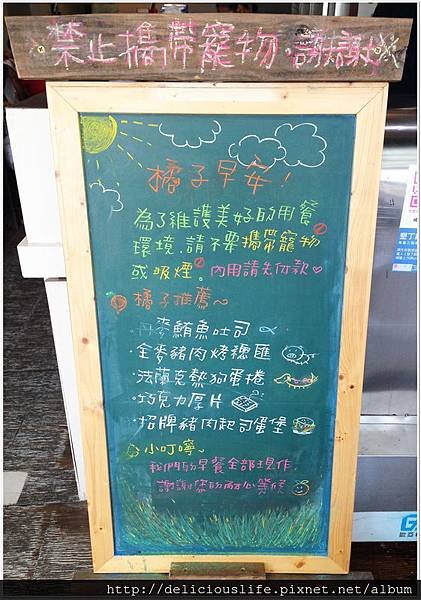 禁止攜帶寵物,謝謝
橘子早安!
為了維護美好的用餐
環境,請不要攜帶寵物
或吸煙。內用請先付款
橘子推薦~
·丹麥鮪魚吐司
·全麥豬肉烤穩匯
·法蘭克熱狗蛋捲
·巧克力厚片
·招牌豬肉起司蛋堡
小叮嚀~
我們的早餐全部現作,
謝謝您的耐心等候
http://deliciouslife.pixnet.net/album